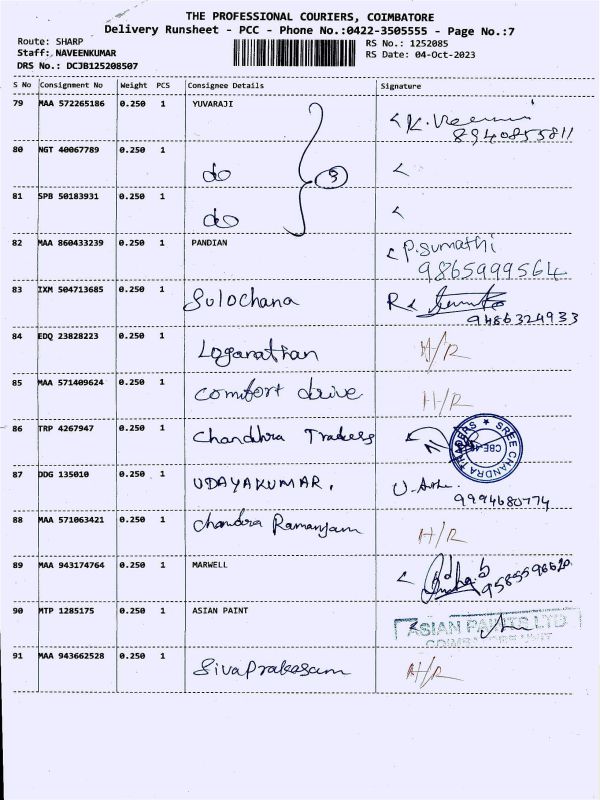 THE PROFESSIONAL COURIERS, COIMBATORE
Delivery Runsheet - PCC - Phone No.:0422-3505555 - Page No.:7
Route: SHARP
Staff: NAVEENKUMAR
DRS No.: DCJB125208507
RS No.: 1252085
RS Date: 04-Oct-2023
S No Consignment No Weight PCS Consignee Details Signature
79 MAA 572265186 0.250 1 YUVARAJI K.
8940855811
80 NGT 40067789 0.250 1 do 3
81 SPB 50183931 0.250 1 do
82 MAA 860433239 0.250 1 PANDIAN P.Sumathi
9865999564
83 IXM 504713685 0.250 1 Sulochana R
9486324933
84 EDQ 23828223 0.250 1 Loganathan H/R
85 MAA 571409624 0.250 1 Comfort drive H/R
86 TRP 4267947 0.250 1 Chandhra Traders SREE CHANDRA TRADERS CBE
87 DDG 135010 0.250 1 UDAYAKUMAR. U.
9994680774
88 MAA 571063421 0.250 1 Chandra Ramanjam H/R
89 MAA 943174764 0.250 1 MARWELL 9585598620
90 MTP 1285175 0.250 1 ASIAN PAINT ASIAN PAINTS LTD
COIMBATORE UNIT
91 MAA 943662528 0.250 1 Sivaprakasam H/R